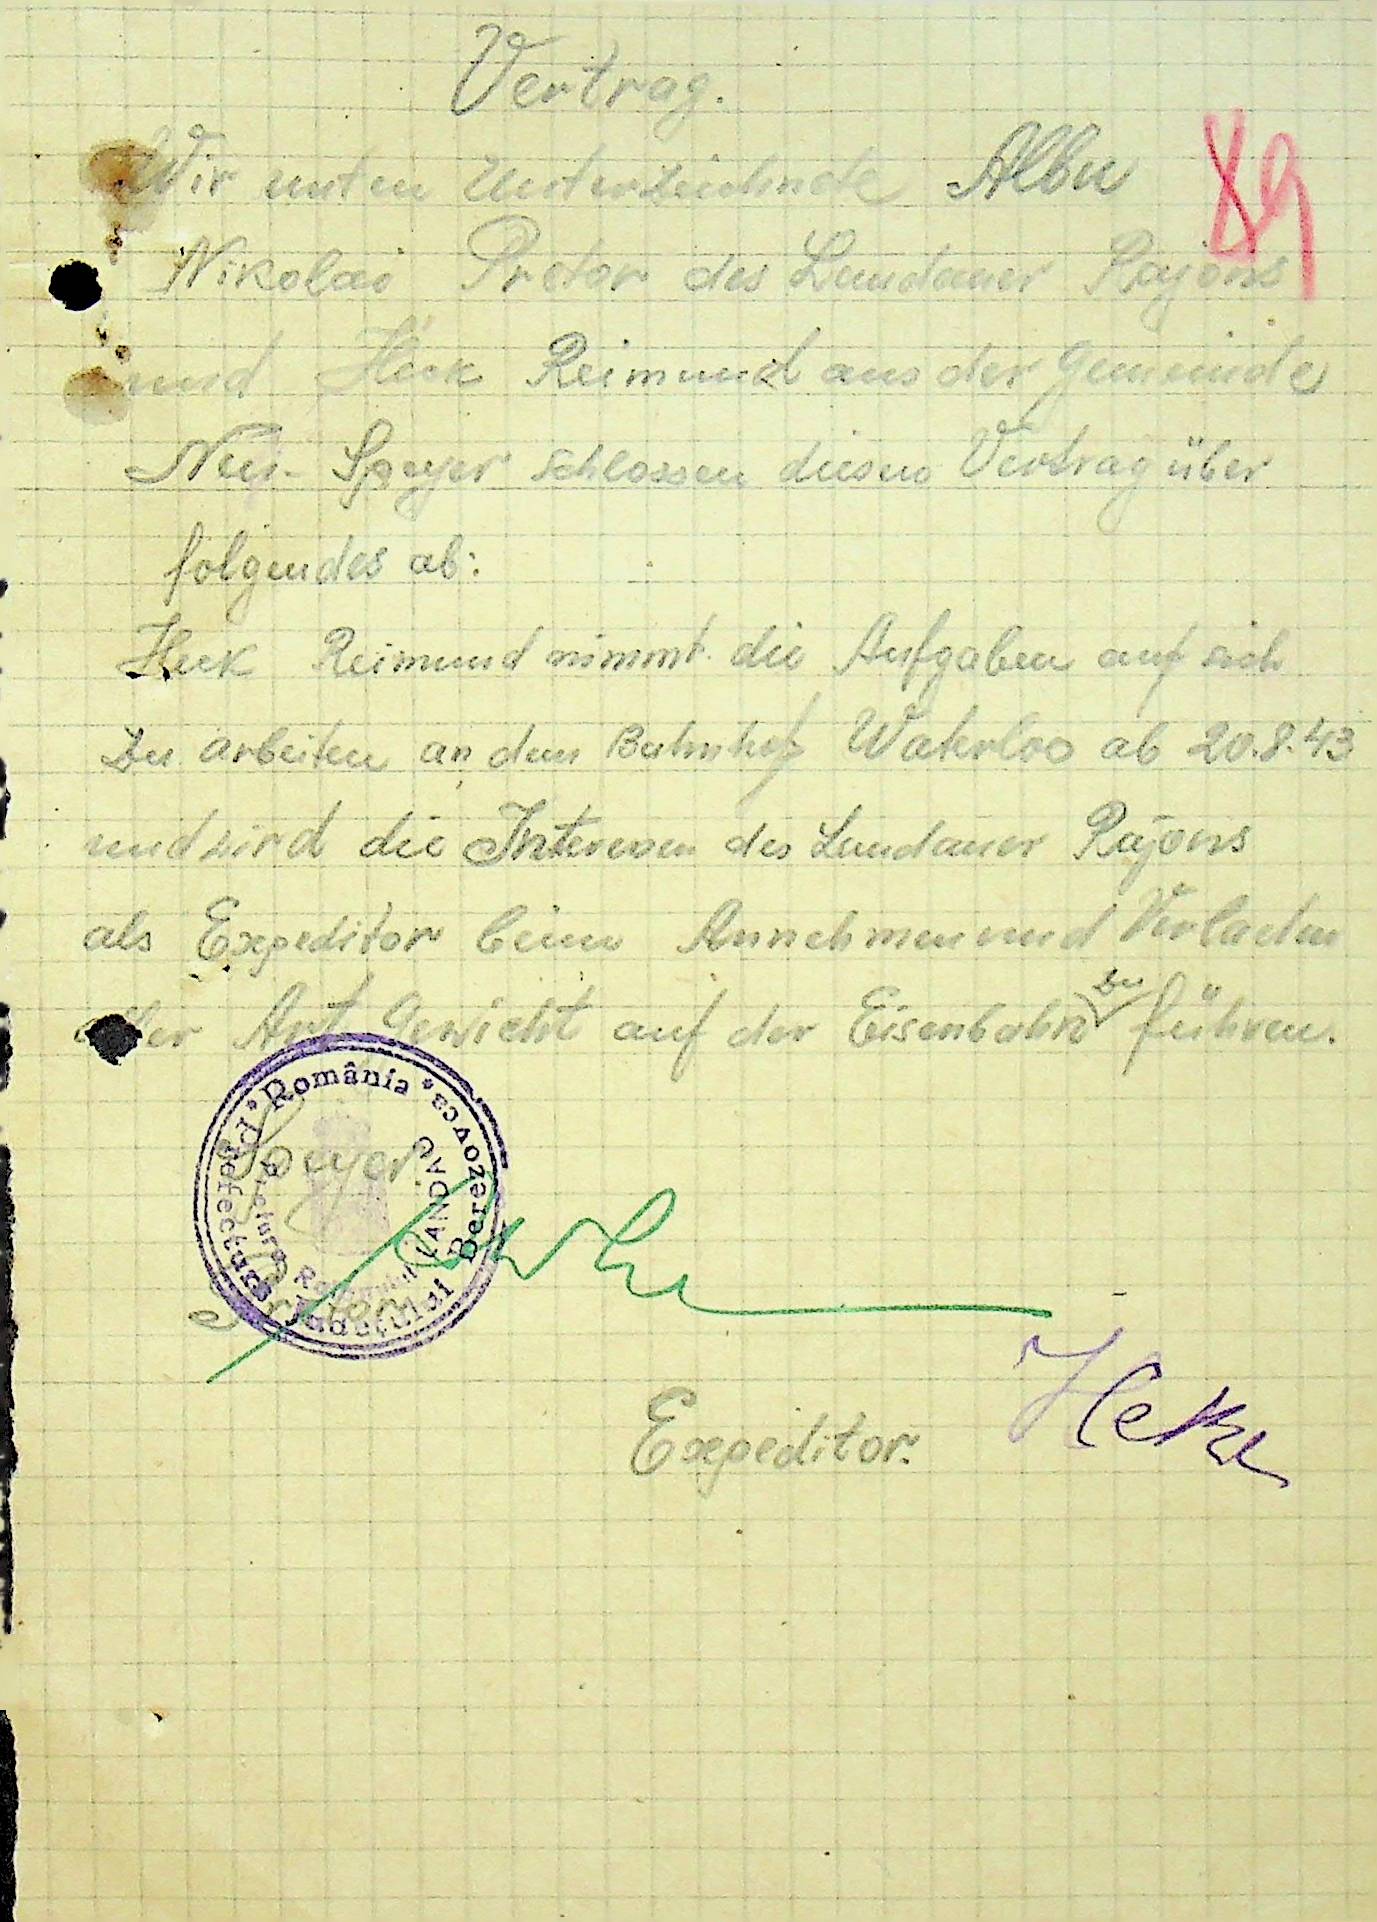 Vertrag.
89
Wir unten Unterzeichnete Albu
Nikolai Pretor des Landauer Rajons
und Heck Reimund aus der Gemeinde
Neu-Speyer schlossen diesen Vertrag über
folgendes ab:
Heck Reimund nimmt die Aufgaben auf sich
zu arbeiten an dem Bahnhof Waterloo ab 20.8.43
und wird die Interessen des Landauer Rajons
als Expeditor beim Annehmen und Verladen
aller Art Gewicht auf der Eisenbahn zu führen.
România * Prefectura Judeţului Berezovca *
Pretura Raionului LANDAU
Speyer
Pretor
Expeditor:
Heck